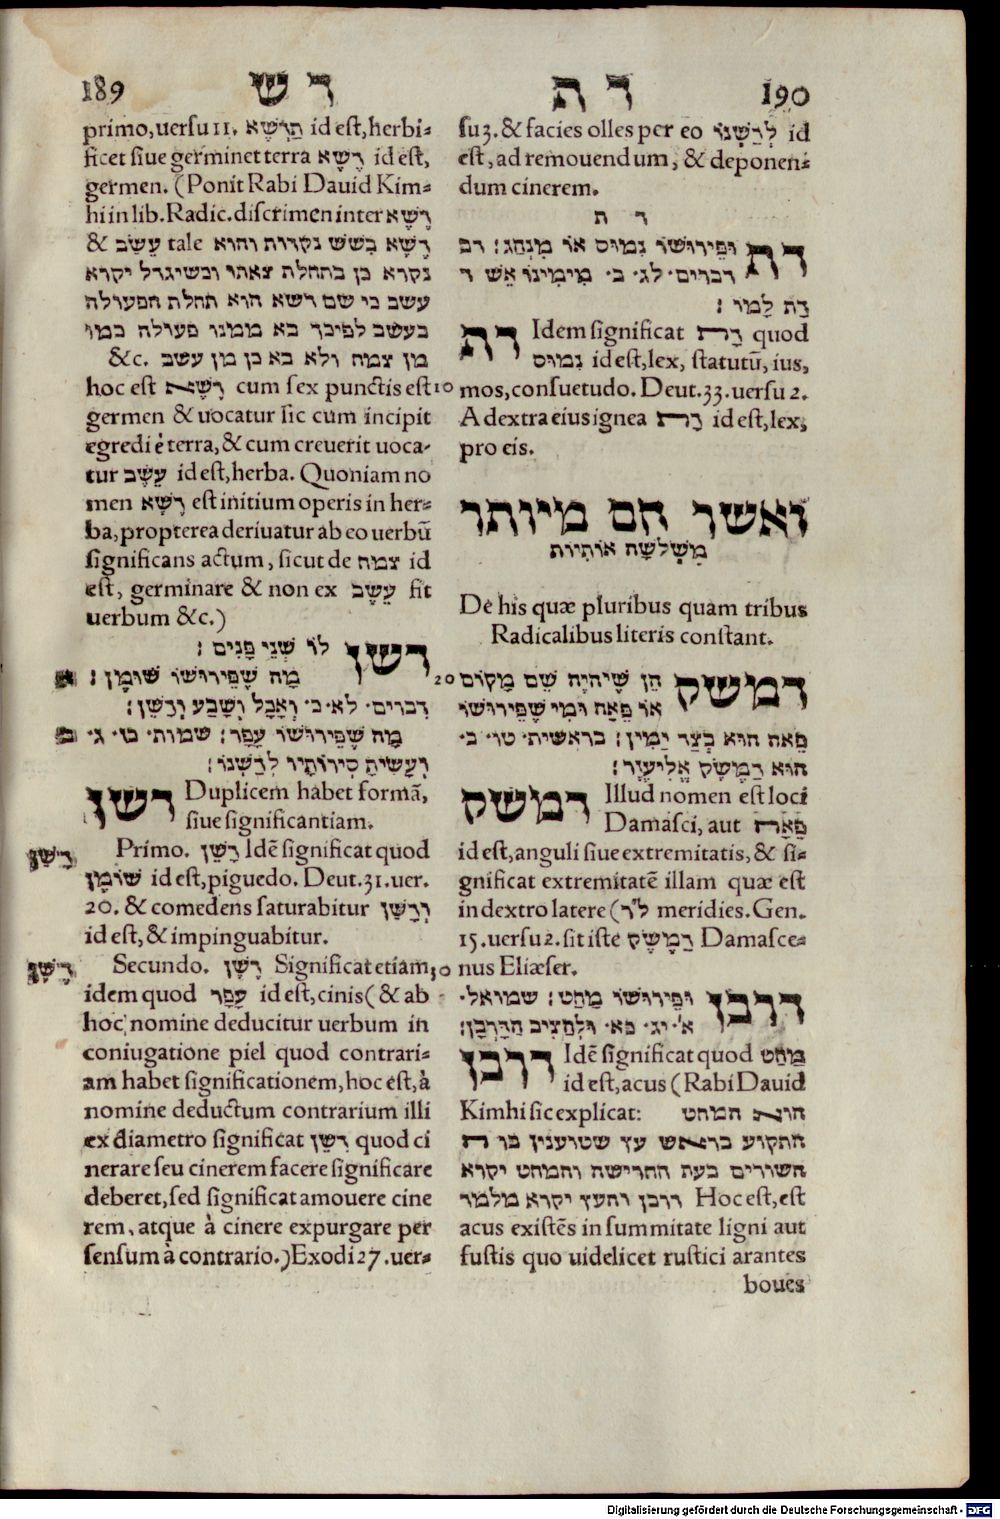 189 ד ש
primo, uersu 11. תַדְשֵׁא id est, herbi=
ficet siue germinet terra דֶּשֶׁא id est,
germen. (Ponit Rabi Dauid Kim=
hi in lib. Radic. discrimen inter דֶּשֶׁא
& עֵשֶׂב tale דֶּשֶׁא בשש נקדות והוא
נקרא כן בתחלת צאתו ובשיגדל יקרא
עשב כי שם דשא הוא תחלת הפעולה
בעשב לפיכך בא ממנו פעולה כמו
מן צמח ולא בא כן מן עשב &c.
hoc est דֶּשֶׁא cum sex punctis est
germen & uocatur sic cum incipit
egredi è terra, & cum creuerit uoca-
tur עֵשֶׂב id est, herba. Quoniam no
men דֶּשֶׁא est initium operis in her=
ba, propterea deriuatur ab eo uerbũ
significans actum, sicut de צמח id
est, germinare & non ex עֵשֶׂב fit
uerbum &c.)
דשן לו שְׁנֵי פָנִים :
א מָה שֶׁפֵּירוּשׁוֹ שׁוּמָן :
דברים· לא· כ· וְאָכַל וְשָׂבַע וְדָשֵׁן :
ב מָה שֶׁפֵּירוּשׁוֹ עָפָר : שמות· כז· ג·
וְעָשִׂיתָ סִירוֹתָיו לְדַשְּׁנוֹ :
דשן Duplicem habet formã,
siue significantiam.
דָּשֵׁן Primo. דָּשֵׁן Idẽ significat quod
שׁוּמָן id est, piguedo. Deut. 31. uer.
20. & comedens saturabitur וְדָשֵׁן
id est, & impinguabitur.
דֶּשֶׁן Secundo. דֶּשֶׁן Significat etiam
idem quod עָפָר id est, cinis (& ab
hoc nomine deducitur uerbum in
coniugatione piel quod contrari=
am habet significationem, hoc est, à
nomine deductum contrarium illi
ex diametro significat דִּשֵּׁן quod ci
nerare seu cinerem facere significare
deberet, sed significat amouere cine
rem, atque à cinere expurgare per
sensum à contrario.) Exodi 27. uer=
ד ת 190
su 3. & facies olles per eo לְדַשְּׁנוֹ id
est, ad remouendum, & deponen=
dum cinerem.
ד ת
דת וּפֵירוּשׁוֹ נִמוּס אוֹ מִנְהַג : דב
דברים· לג· ב· מִימִינוֹ אֵשׁ ד
דָּת לָמוֹ :
דת Idem significat דָּת quod
נִמוּס id est, lex, statutũ, ius,
10 mos, consuetudo. Deut. 33. uersu 2.
A dextra eius ignea דָּת id est, lex,
pro eis.
ואשר הם מיותר
מִשְׁלשָׁה אוֹתִיוֹת
De his quæ pluribus quam tribus
Radicalibus literis constant.
דמשק הֵן שֶׁיִהְיֶה שֵׁם מָקוֹם
20 אוֹ פֵּאָה וּמִי שֶׁפֵּירוּשׁוֹ
פֵּאה הוא בְּצַד יָמִין : בראשית· טו· ב·
הוא דַּמֶּשֶׂק אֱלִיעֶזֶר :
דמשק Illud nomen est loci
Damasci, aut פֵּאָה
id est, anguli siue extremitatis, & si-
gnificat extremitatẽ illam quæ est
in dextro latere (ל״ר meridies. Gen.
15. uersu 2. sit iste דַּמֶּשֶׂק Damasce=
30 nus Eliæser.
דרבן וּפֵירוּשׁוֹ מַחַט : שמואל·
א׳· יג· כא· וּלְהַצִּיב הַדָּרְבָן :
דרבן Idẽ significat quod מַחַט
id est, acus (Rabi Dauid
Kimhi sic explicat: הוא המחט
התקוע בראש עץ שטוענין בו ה
השורים בעת החרישה והמחט יקרא
דרבן והעץ יקרא מלמד Hoc est, est
acus existẽs in summitate ligni aut
fustis quo uidelicet rustici arantes
boues
Digitalisierung gefördert durch die Deutsche Forschungsgemeinschaft - DFG